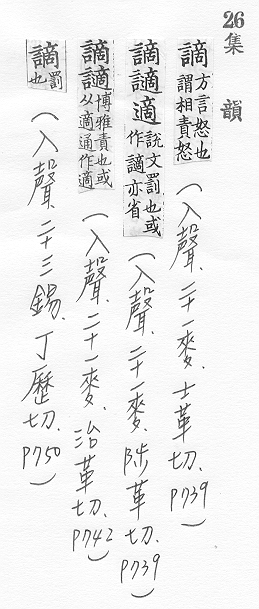 26
集韻
謫方言怒也謂相責怒（入聲.二十一麥.士革切.P739）
謫讁適說文罰也或作讁亦省（入聲.二十一麥.陟革切.P739）
謫讁博雅責也或从適通作適（入聲.二十一麥.治革切.P742）
謫罰也（入聲.二十三錫.丁歷切.P750）